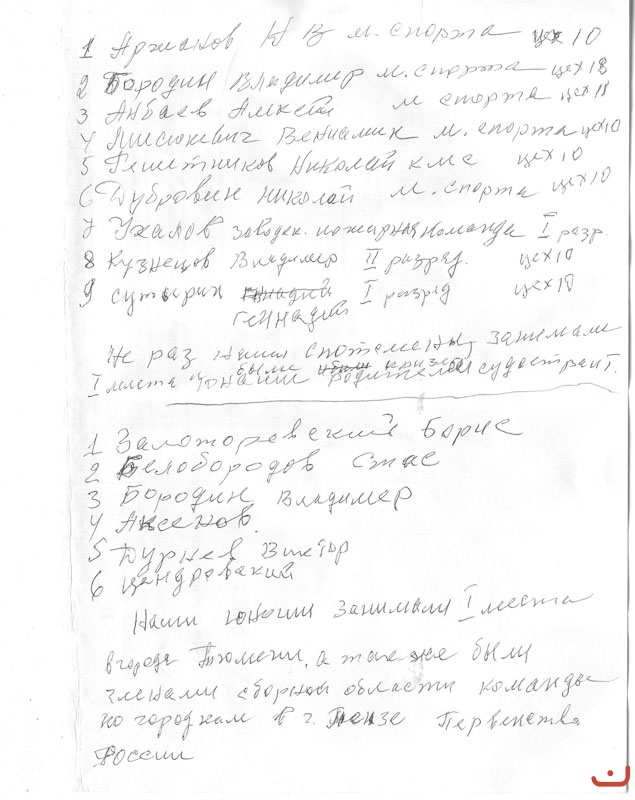 1 Аржанов Н В м. спорта цех 10
2 Бородин Владимир м. спорта цех 18
3 Анбаев м спорта цех 18
4 Мисюкевич Вениамин м. спорта цех 10
5 Решетников Николай кмс цех 10
6 Дубровин николай м. спорта цех 10
7 Ухалов заводск. пожарная команда I разр.
8 Кузнецов Владимир II разряд. цех 10
9 Сутырин Геннадий I разряд цех 10
Не раз наши занимали
I места были судостроит.
1 Залоторевский Борис
2 Белобородов Стас
3 Бородин Владимир
4 Аксенов.
5 Дурнев Виктор
6 Цендровский
Наши юноши занимали I места
в городе Тюмени, а так же были
членами сборной области команды
по городкам в г. Пензе Первенства
России